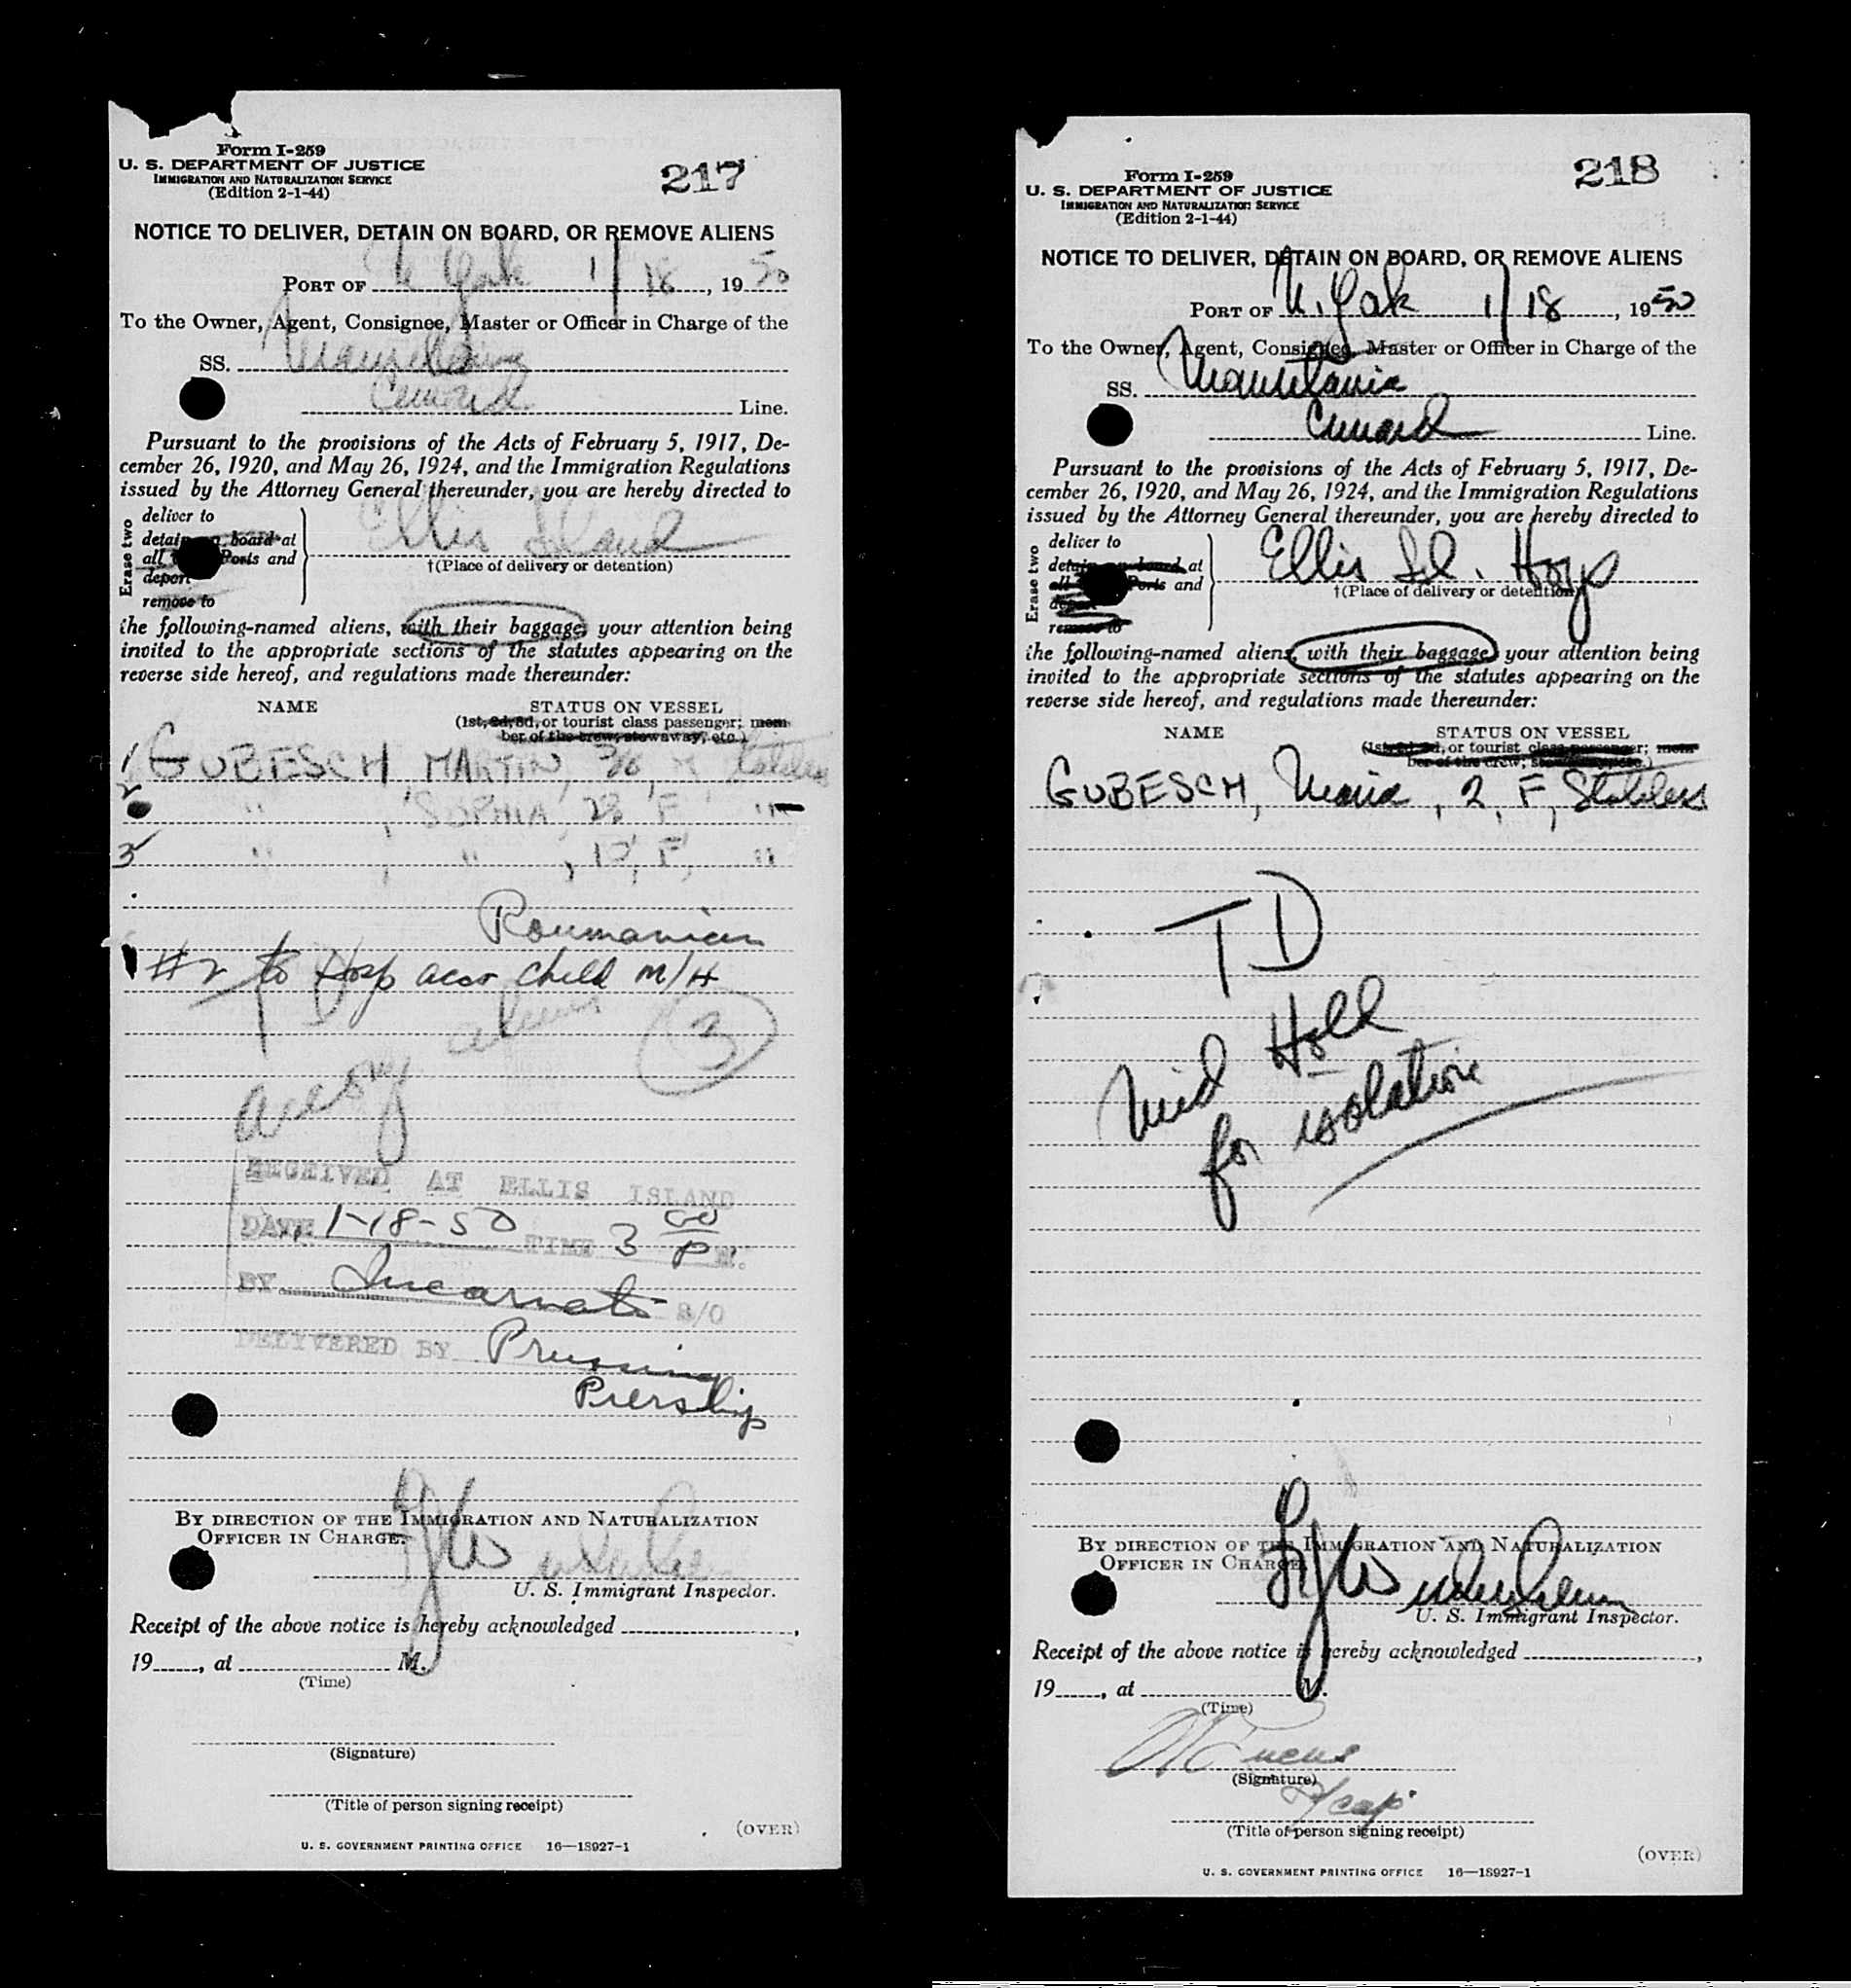 Form I-259
U. S. DEPARTMENT OF JUSTICE
IMMIGRATION AND NATURALIZATION SERVICE
(Edition 2-1-44)
217
NOTICE TO DELIVER, DETAIN ON BOARD, OR REMOVE ALIENS
PORT OF N. York 1/18, 1950
To the Owner, Agent, Consignee, Master or Officer in Charge of the
SS. Mauretania
Cunard Line.
Pursuant to the provisions of the Acts of February 5, 1917, De-
cember 26, 1920, and May 26, 1924, and the Immigration Regulations
issued by the Attorney General thereunder, you are hereby directed to
Erase two
deliver to
detain on board at
all Ports and
deport
remove to
Ellis Island
†(Place of delivery or detention)
the following-named aliens, with their baggage, your attention being
invited to the appropriate sections of the statutes appearing on the
reverse side hereof, and regulations made thereunder:
NAME STATUS ON VESSEL
(1st, 2d, 3d, or tourist class passenger; mem-
ber of the crew, stowaway, etc.)
1 GUBESCH, MARTIN, 36, M Stateless
2 " , SOPHIA, 28 F "
3 " , " , F, "
Roumanian
#2 to Hosp acco child M/H
3
RECEIVED AT ELLIS ISLAND
DATE 1-18-50 TIME 3 00 P M.
BY Incarnato S/O
DELIVERED BY Prussing
Piership
BY DIRECTION OF THE IMMIGRATION AND NATURALIZATION
OFFICER IN CHARGE.
U. S. Immigrant Inspector.
Receipt of the above notice is hereby acknowledged ,
19 , at M.
(Time)
(Signature)
(Title of person signing receipt)
(OVER)
U. S. GOVERNMENT PRINTING OFFICE 16—18927-1
Form I-259
U. S. DEPARTMENT OF JUSTICE
IMMIGRATION AND NATURALIZATION SERVICE
(Edition 2-1-44)
218
NOTICE TO DELIVER, DETAIN ON BOARD, OR REMOVE ALIENS
PORT OF N. York 1/18, 1950
To the Owner, Agent, Consignee, Master or Officer in Charge of the
SS. Mauretania
Cunard Line.
Pursuant to the provisions of the Acts of February 5, 1917, De-
cember 26, 1920, and May 26, 1924, and the Immigration Regulations
issued by the Attorney General thereunder, you are hereby directed to
Erase two
deliver to
detain on board at
all Ports and
deport
remove to
Ellis Isl. Hosp
†(Place of delivery or detention)
the following-named aliens, with their baggage, your attention being
invited to the appropriate sections of the statutes appearing on the
reverse side hereof, and regulations made thereunder:
NAME STATUS ON VESSEL
(1st, 2d, 3d, or tourist class passenger; mem-
ber of the crew, stowaway, etc.)
GUBESCH, Maria, 2, F, Stateless
TD
Med Hold
for isolation
BY DIRECTION OF THE IMMIGRATION AND NATURALIZATION
OFFICER IN CHARGE.
U. S. Immigrant Inspector.
Receipt of the above notice is hereby acknowledged ,
19 , at M.
(Time)
(Signature)
(Title of person signing receipt)
(OVER)
U. S. GOVERNMENT PRINTING OFFICE 16—18927-1